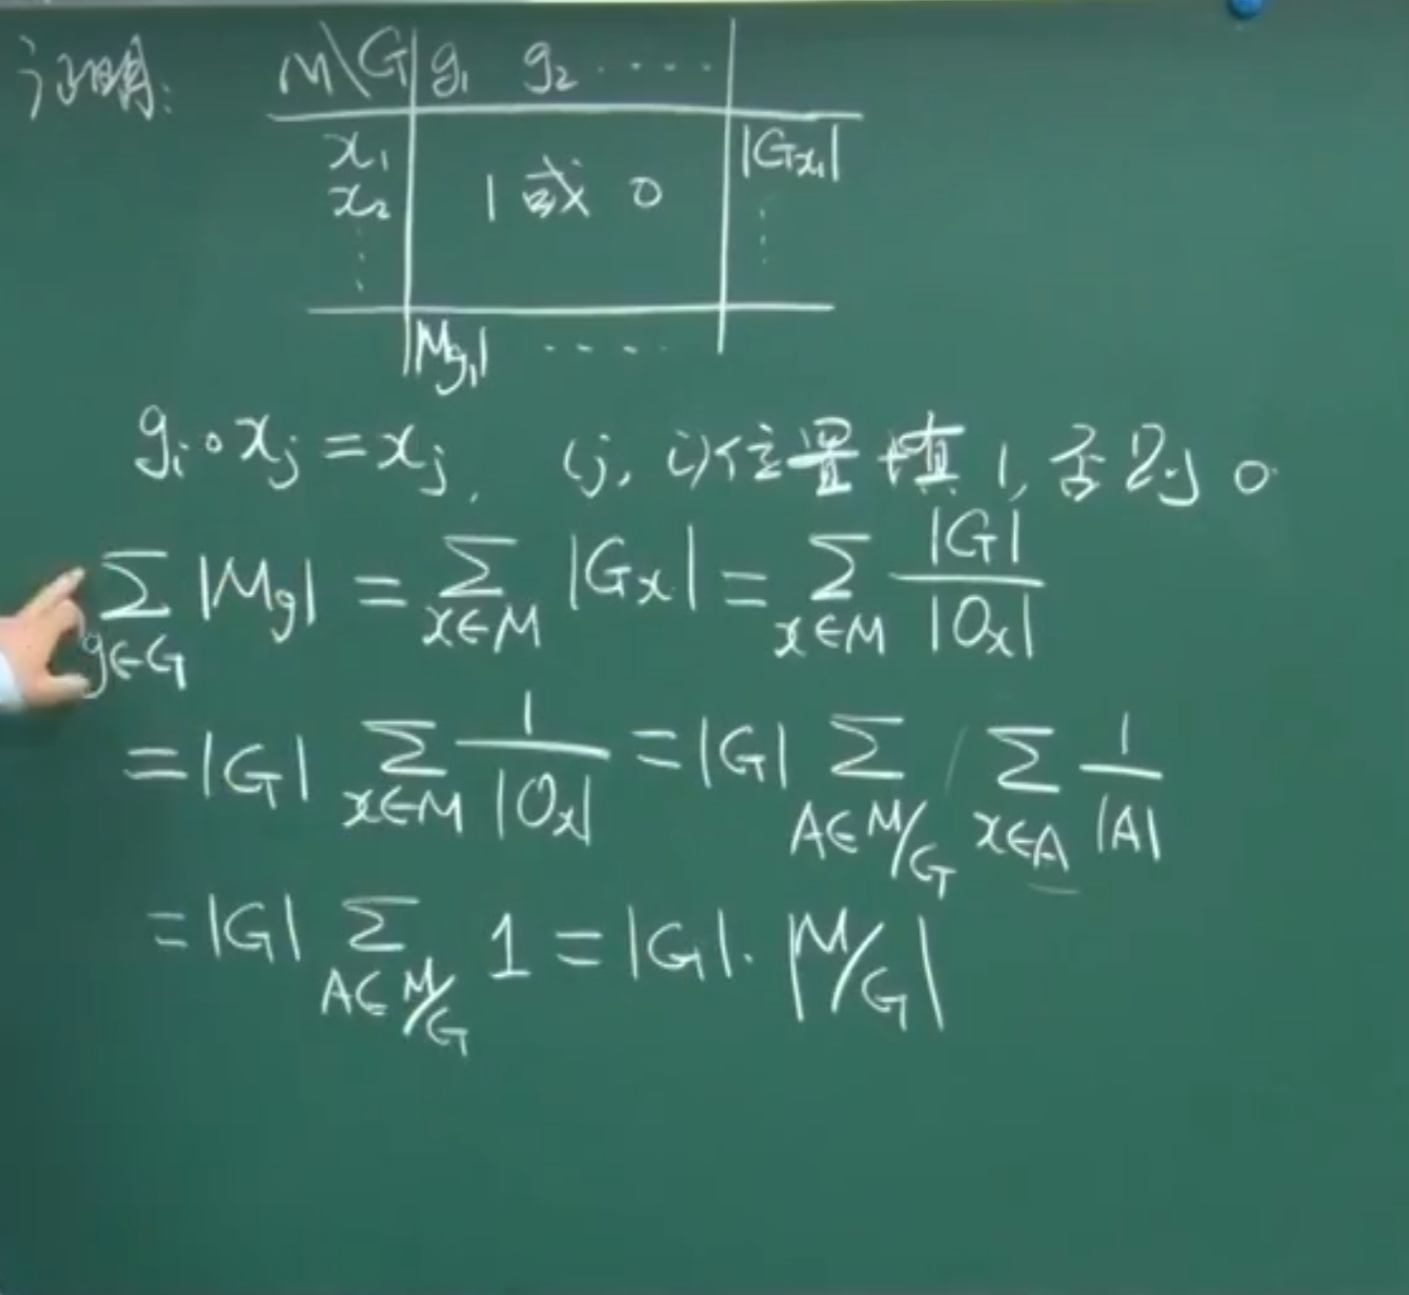 证明: M\G g₁ g₂ ·····
x₁ |Gx₁|
x₂ 1 或 0
|Mg₁| ·····
gᵢ∘xⱼ=xⱼ, (j, i)位置填1, 否则 0
∑_{g∈G} |Mg| = ∑_{x∈M} |Gx| = ∑_{x∈M} |G|/|Ox|
=|G| ∑_{x∈M} 1/|Ox| =|G| ∑_{A∈M/G} ∑_{x∈A} 1/|A|
=|G| ∑_{A∈M/G} 1 =|G|· |M/G|